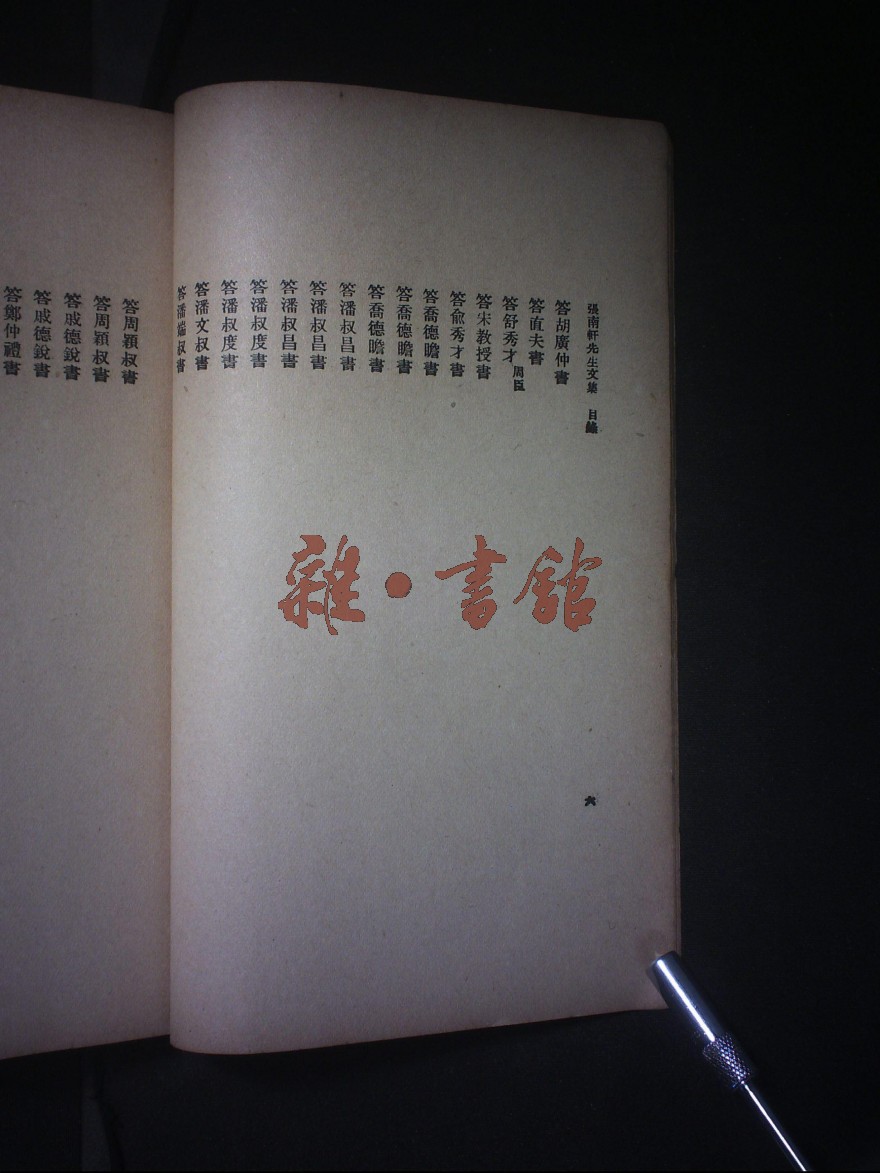 張南軒先生文集 目錄
六
答胡廣仲書
答直夫書
答舒秀才周臣
答宋教授書
答俞秀才書
答喬德瞻書
答喬德瞻書
答喬德瞻書
答潘叔昌書
答潘叔昌書
答潘叔昌書
答潘叔度書
答潘叔度書
答潘文叔書
答潘端叔書
答周穎叔書
答周穎叔書
答戚德銳書
答戚德銳書
答鄭仲禮書
雜·書館